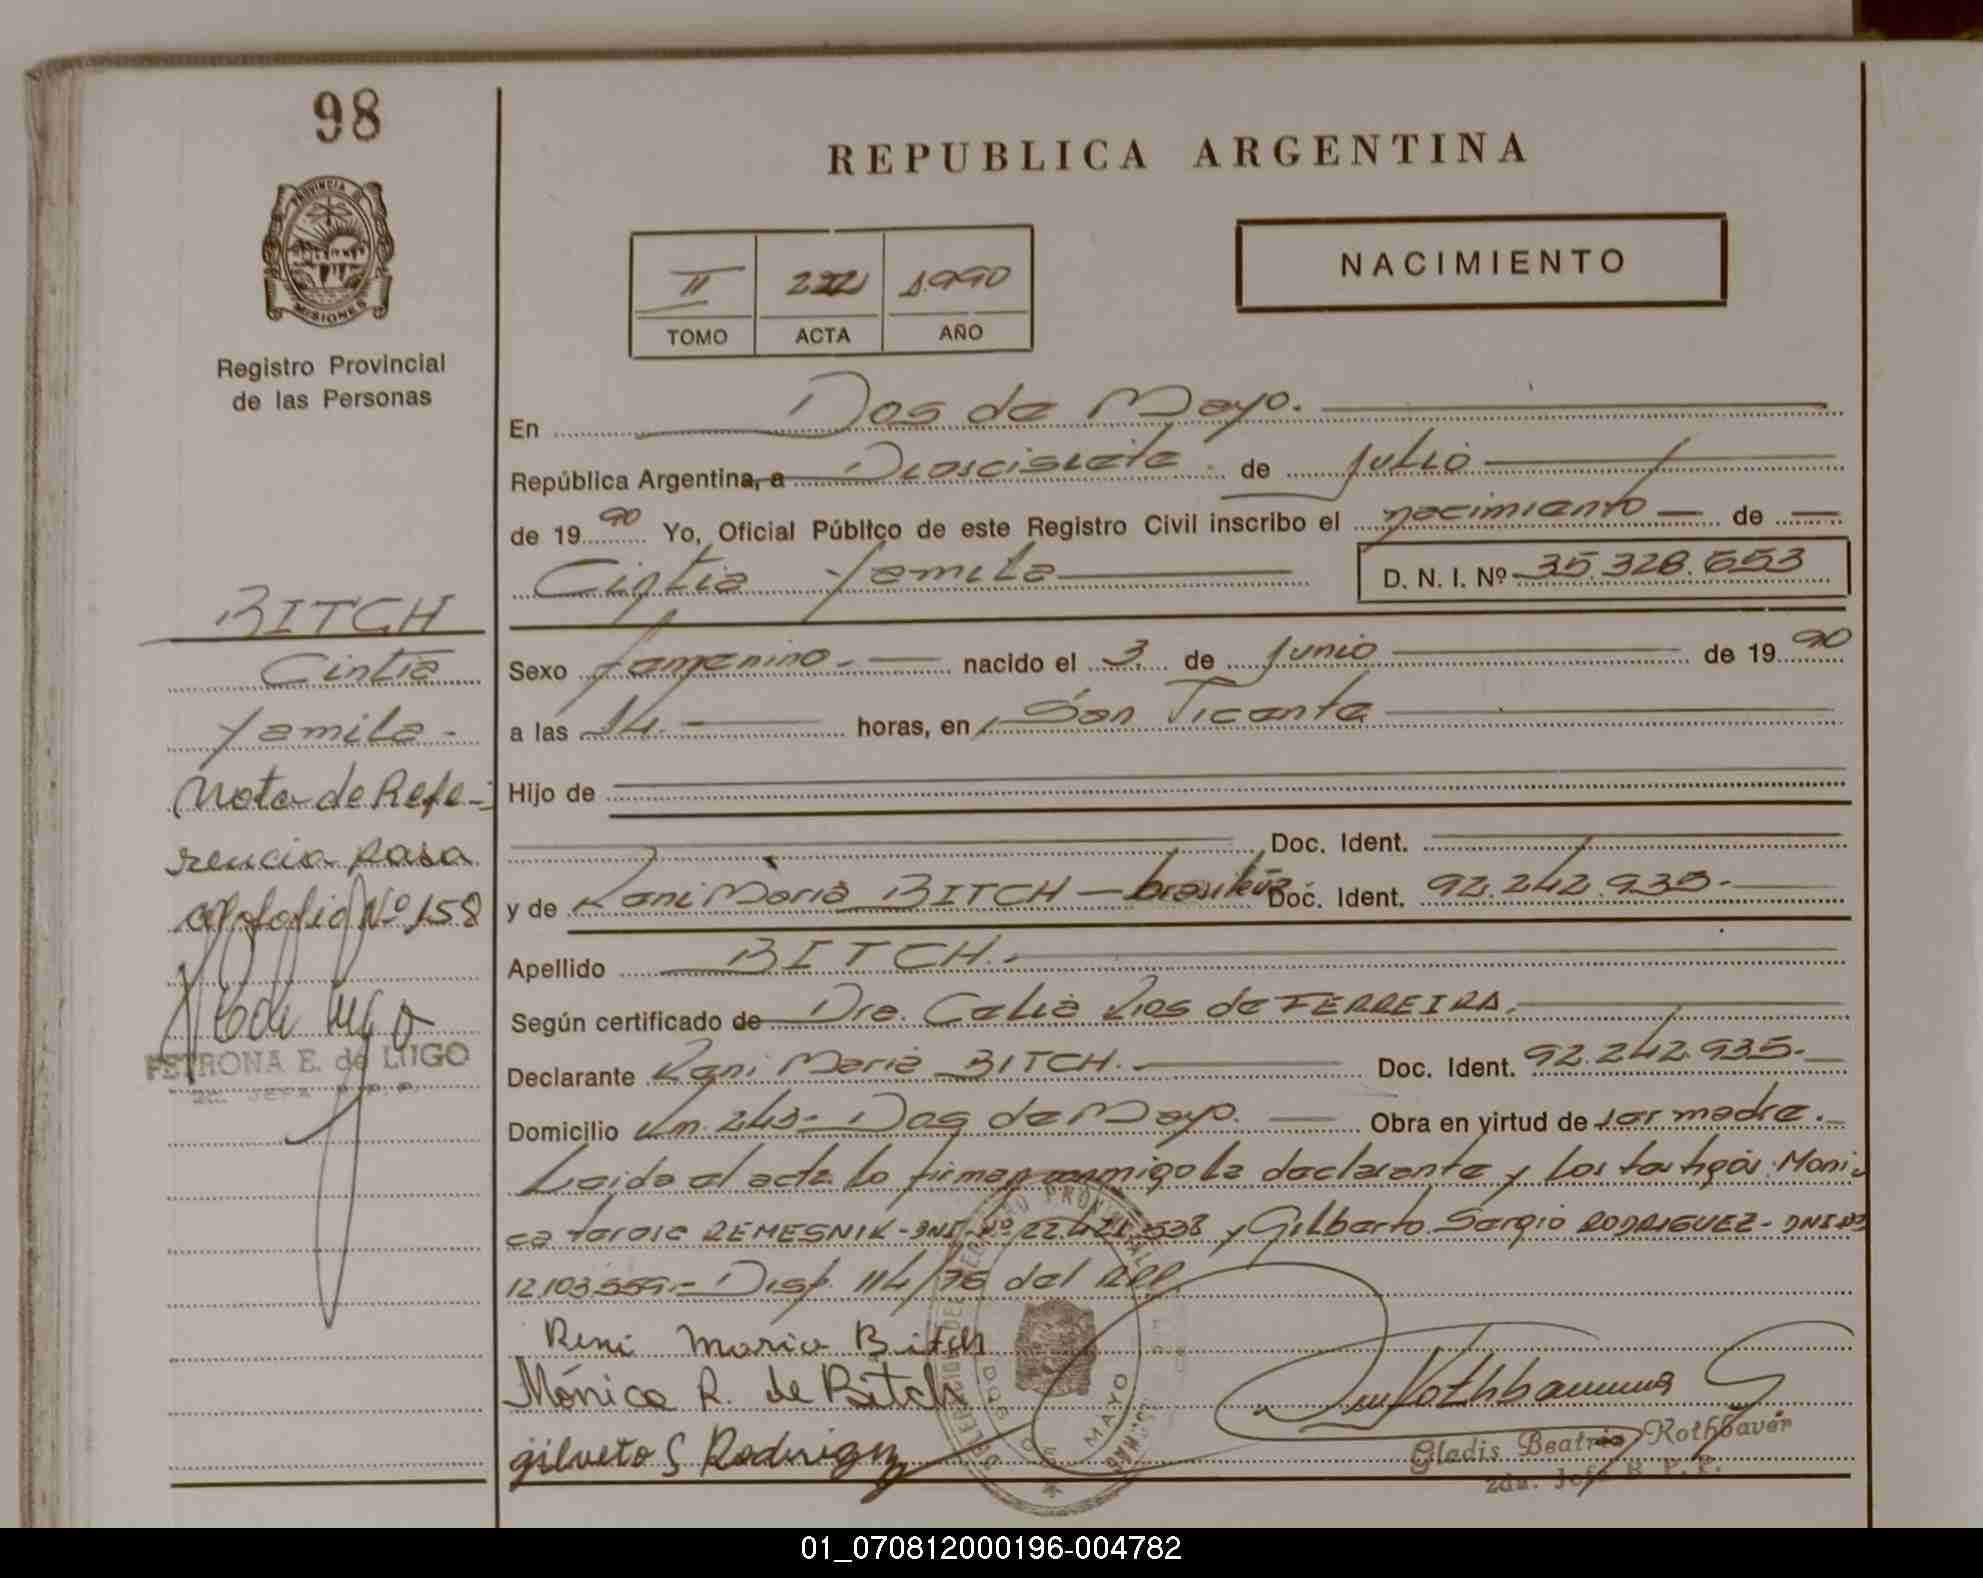 98
REPUBLICA ARGENTINA
PROVINCIA DE
MISIONES
Registro Provincial
de las Personas
II 222 1.990
TOMO ACTA AÑO
NACIMIENTO
En Dos de Mayo.
República Argentina, a Diescisiete de Julio
de 19 90 Yo, Oficial Público de este Registro Civil inscribo el nacimiento de
Cintia Yamila D. N. I. Nº 35.328.653
Sexo femenino. nacido el 3 de Junio de 19 90
a las 14. horas, en San Vicente
Hijo de
Doc. Ident.
y de Reni Maria BITCH brasileña. Doc. Ident. 92.242.935.
Apellido BITCH.
Según certificado de Dra. Celia Rios de FERREIRA.
Declarante Reni Maria BITCH. Doc. Ident. 92.242.935.
Domicilio Km. 243- Dos de Mayo. Obra en virtud de ser madre.
Leida el acta lo firman conmigo la declarante y los testigos: Moni-
ca terese REMESNIK-DNI-Nº 22.421.538 y Gilberto Sergio RODRIGUEZ- DNI Nº
12.103.559.- Disp. 114/76 del RPP.
Reni Maria Bitch
Mónica R. de Bitch
gilveto S Rodriguez
Rothbauer
Gladis Beatriz Rothbaver
2da. Jefe R. P. P.
DOS DE MAYO
BITCH
Cintia
Yamila-
Nota de Refe-
rencia pasa
al folio Nº 158
PETRONA E. de LUGO
JEFA R. P. P.
01_070812000196-004782